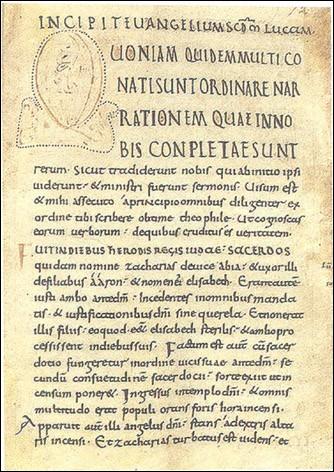 INCIPIT EVANGELIUM SCDM LUCAM
UONIAM QUIDEM MULTI CO
NATI SUNT ORDINARE NAR
RATIONEM QUAE IN NO
BIS CONPLETAE SUNT
rerum. Sicut tradiderunt nobis qui ab initio ipsi
viderunt & ministri fuerunt sermonis. Uisum est
& mihi assecuto a principio omnibus diligenter ex
ordine tibi scribere obtime theophile. Ut cognoscas
eorum verborum de quibus eruditus es veritatem.
FUIT IN DIEBUS HERODIS REGIS IUDAE SACERDOS
quidam nomine zacharias de vice abia & uxor illi
de filiabus aaron & nomen eius elisabeth. Erant autem
iusti ambo ante dm. Incedentes in omnibus manda
tis & iustificationibus dni sine querela. Et non erat
illis filius eo quod e& elisabeth sterilis & ambo pro
cessissent in diebus suis. Factum est aut cu sacer
dotio fungeretur in ordine vicis suae ante dm. se
cundu consuetudine sacerdocii sorte exiit ut in
censum poner& Ingressus in templo dni & omnis
multitudo erat populi orans foris hora incensi.
Apparuit aut illi angelus dni stans a dextris alta
ris incensi. Et zacharias turbatus est videns et